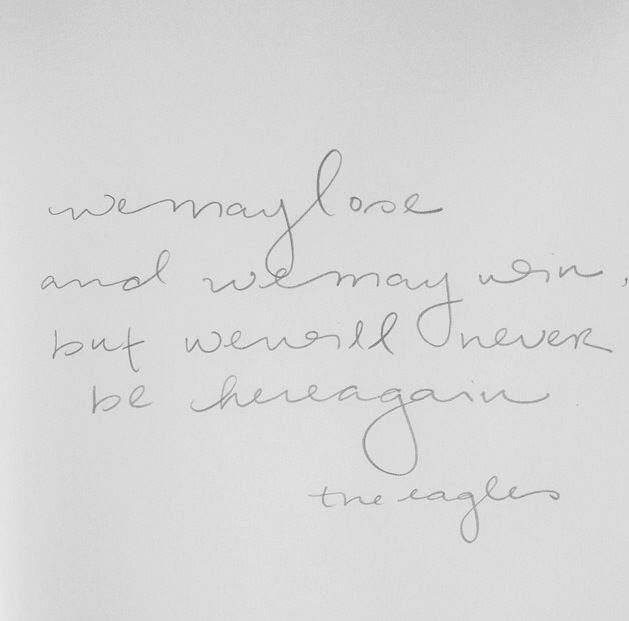 we may lose
and we may win,
but we will never
be here again
the eagles